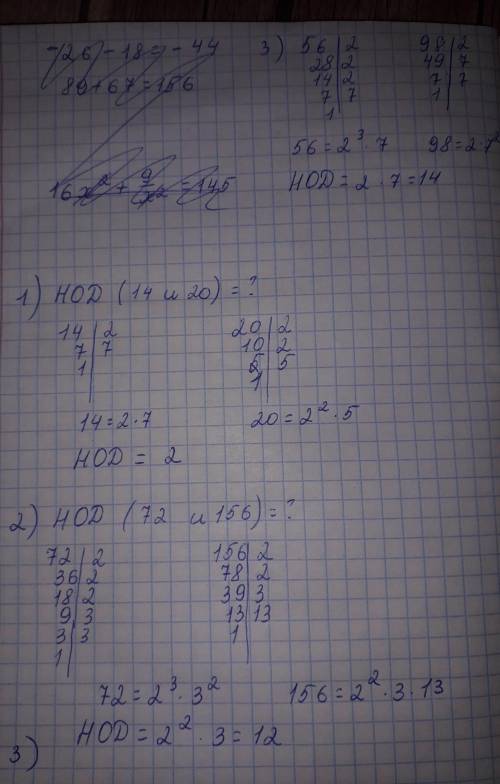 -26 - 18 = -44
89 + 67 = 156
16x² + 9/x² = 145
3) 56 | 2
28 | 2
14 | 2
7 | 7
1
98 | 2
49 | 7
7 | 7
1
56 = 2³ · 7 98 = 2 · 7²
НОД = 2 · 7 = 14
1) НОД (14 и 20) = ?
14 | 2
7 | 7
1
20 | 2
10 | 2
5 | 5
1
14 = 2 · 7 20 = 2² · 5
НОД = 2
2) НОД (72 и 156) = ?
72 | 2
36 | 2
18 | 2
9 | 3
3 | 3
1
156 | 2
78 | 2
39 | 3
13 | 13
1
72 = 2³ · 3² 156 = 2² · 3 · 13
НОД = 2² · 3 = 12
3)